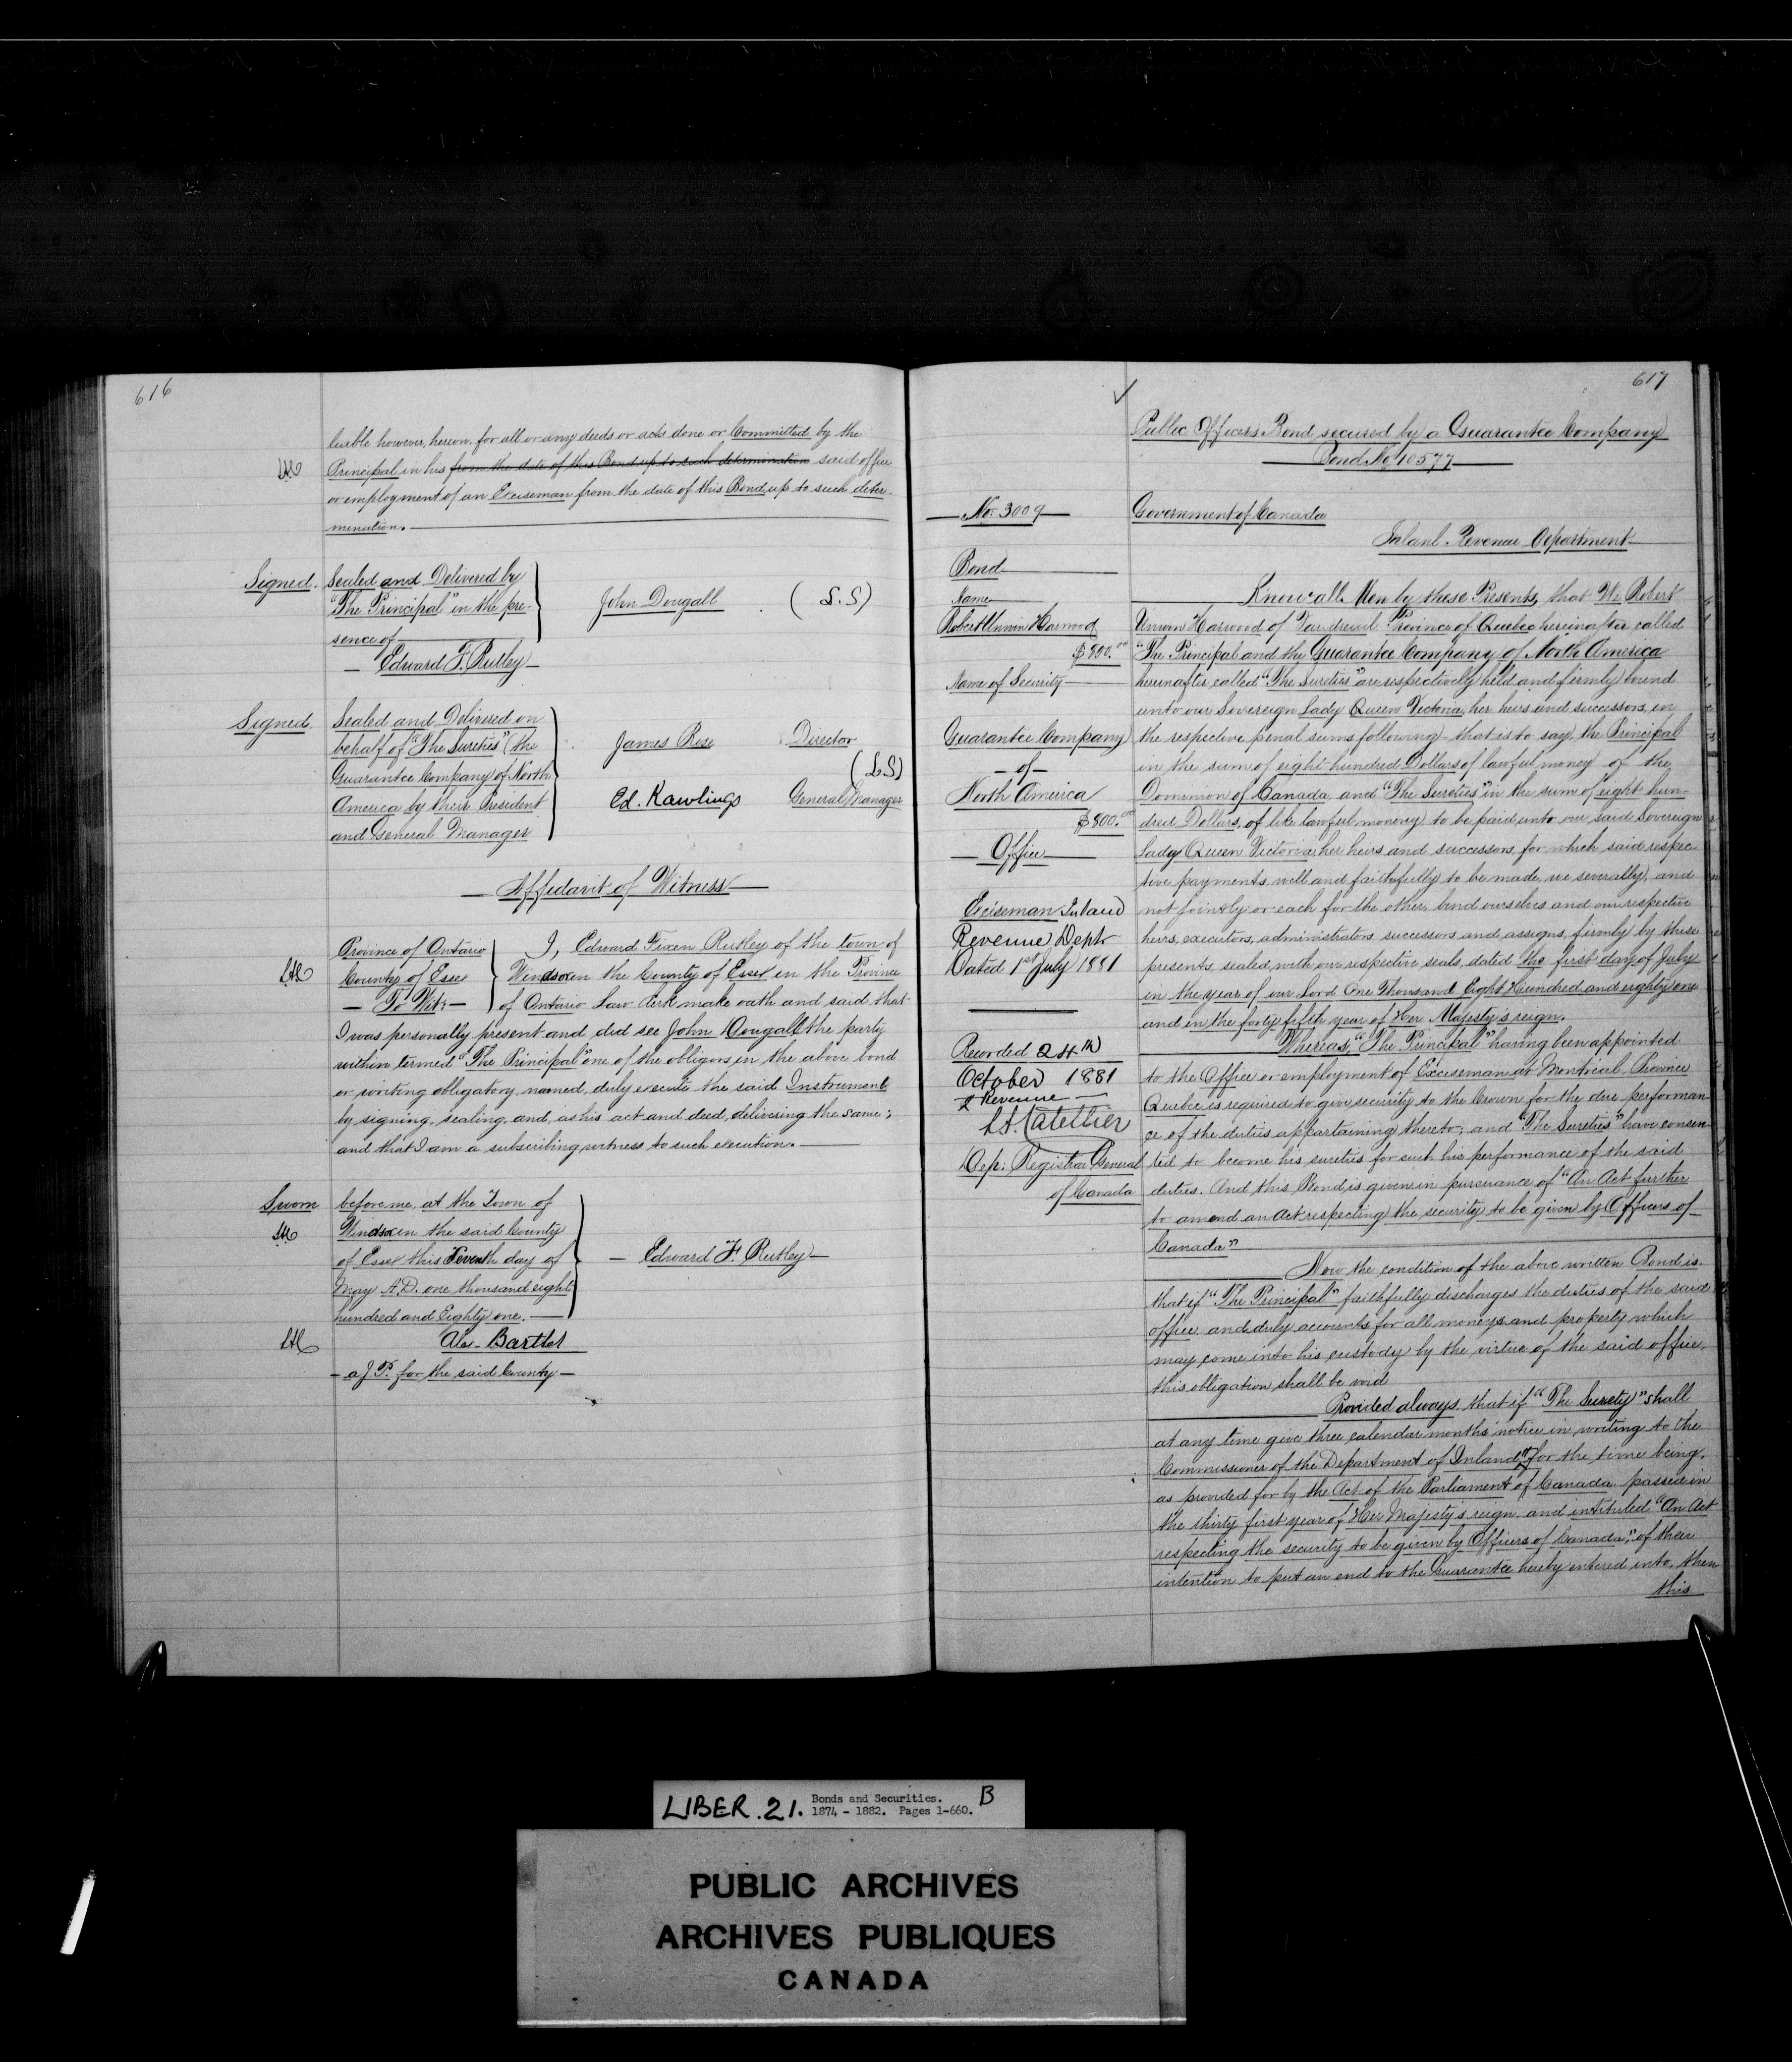 616
liable however, hereon, for all or any deeds or acts done or Committed by the
Principal in his from the date of this Bond up to such determination said office
or employment of an Exciseman from the date of this Bond up to such deter-
mination.
Signed. Sealed and Delivered by
"The Principal" in the pre-
sence of
Edward F. Rutley
John Dougall (L.S)
Signed Sealed and Delivered on
behalf of "The Sureties" (the
Guarantee Company of North
America by their President
and General Manager
James Rose Director
(L.S)
Ed. Rawlings General Manager
Affidavit of Witness
Province of Ontario
County of Essex
To Wit:
I, Edward Fixen Rutley of the town of
Windsor in the County of Essex in the Province
of Ontario Law Clerk make oath and said that
I was personally present and did see John Dougall the party
within termed "The Principal" one of the obligors in the above bond
or writing obligatory named, duly execute the said Instrument
by signing, sealing, and, as his act and deed, delivering the same;
and that I am a subscribing witness to such execution.
Sworn before me, at the Town of
Windsor in the said County
of Essex this Seventh day of
May A.D. one thousand eight
hundred and Eighty one.
Edward F. Rutley
Alex. Bartlet
a J.P. for the said County
617
Public Officers Bond secured by a Guarantee Company
Bond No 10577
No. 3009
Bond
Name
Robert Unwin Harwood
$800.00
Name of Security
Guarantee Company
of
North America
$800.00
Office
Exciseman Inland
Revenue Dept
Dated 1st July 1881
Recorded 24th
October 1881
Revenue
L.A. Catellier
Dep. Registrar General
of Canada
Government of Canada
Inland Revenue Department
Know all Men by these Presents, that We Robert
Unwin Harwood of Vaudreuil Province of Quebec hereinafter called
"The Principal and the Guarantee Company of North America
hereinafter called "The Sureties" are respectively held and firmly bound
unto our Sovereign Lady Queen Victoria, her heirs and successors, in
the respective penal sums following that is to say, the Principal
in the sum of eight hundred Dollars of lawful money of the
Dominion of Canada, and "The Sureties" in the sum of eight hun-
dred Dollars, of like lawful money to be paid unto our said Sovereign
Lady Queen Victoria, her heirs and successors, for which said respec
tive payments, well and faithfully to be made, we severally, and
not jointly or each for the other, bind ourselves and our respective
heirs, executors, administrators, successors and assigns, firmly by these
presents, sealed, with our respective seals, dated the first day of July
in the year of our Lord One Thousand Eight Hundred and eighty one
and in the forty fifth year of Her Majesty's reign.
Whereas, "The Principal" having been appointed
to the Office or employment of Exciseman at Montreal Province
Quebec is required to give security to the Crown for the due performan
ce of the duties appartaining thereto; and "The Sureties" have consen
ted to become his sureties for such his performance of the said
duties. And this Bond, is given in pursuance of "An Act further
to amend an Act respecting the security to be given by Officers of
Canada"
Now the condition of the above written Bond is.
that if "The Principal" faithfully discharges the duties of the said
office and duly accounts for all moneys and property which
may come into his custody by the virtue of the said office,
this obligation shall be void
Provided always that if "The Surety" shall
at any time give three calendar months' notice in writing to the
Commissioner of the Department of Inland for the time being,
as provided for by the Act of the Parliament of Canada passed in
the thirty first year of Her Majesty's reign, and intituled "An Act
respecting the security to be given by Officers of Canada", of their
intention to put an end to the Guarantee hereby entered into, then
this
LIBER. 21. Bonds and Securities. B
1874 - 1882. Pages 1-660.
PUBLIC ARCHIVES
ARCHIVES PUBLIQUES
CANADA